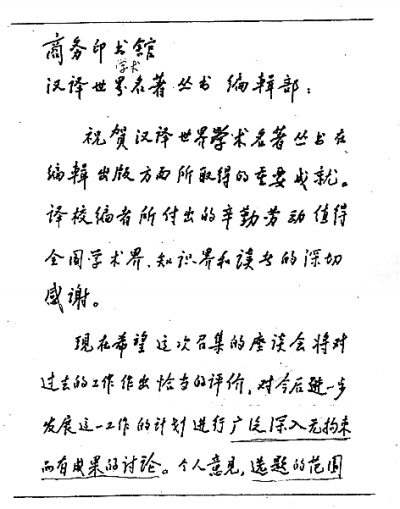 商务印书馆
学术
汉译世界名著丛书 编辑部：
祝贺汉译世界学术名著丛书在
编辑出版方面所取得的重要成就。
译校编者所付出的辛勤劳动值得
全国学术界、知识界和读者的深切
感谢。
现在希望这次召集的座谈会将对
过去的工作作出恰当的评价，对今后进一步
发展这一工作的计划进行广泛深入无拘束
而有成果的讨论。个人意见，选题的范围